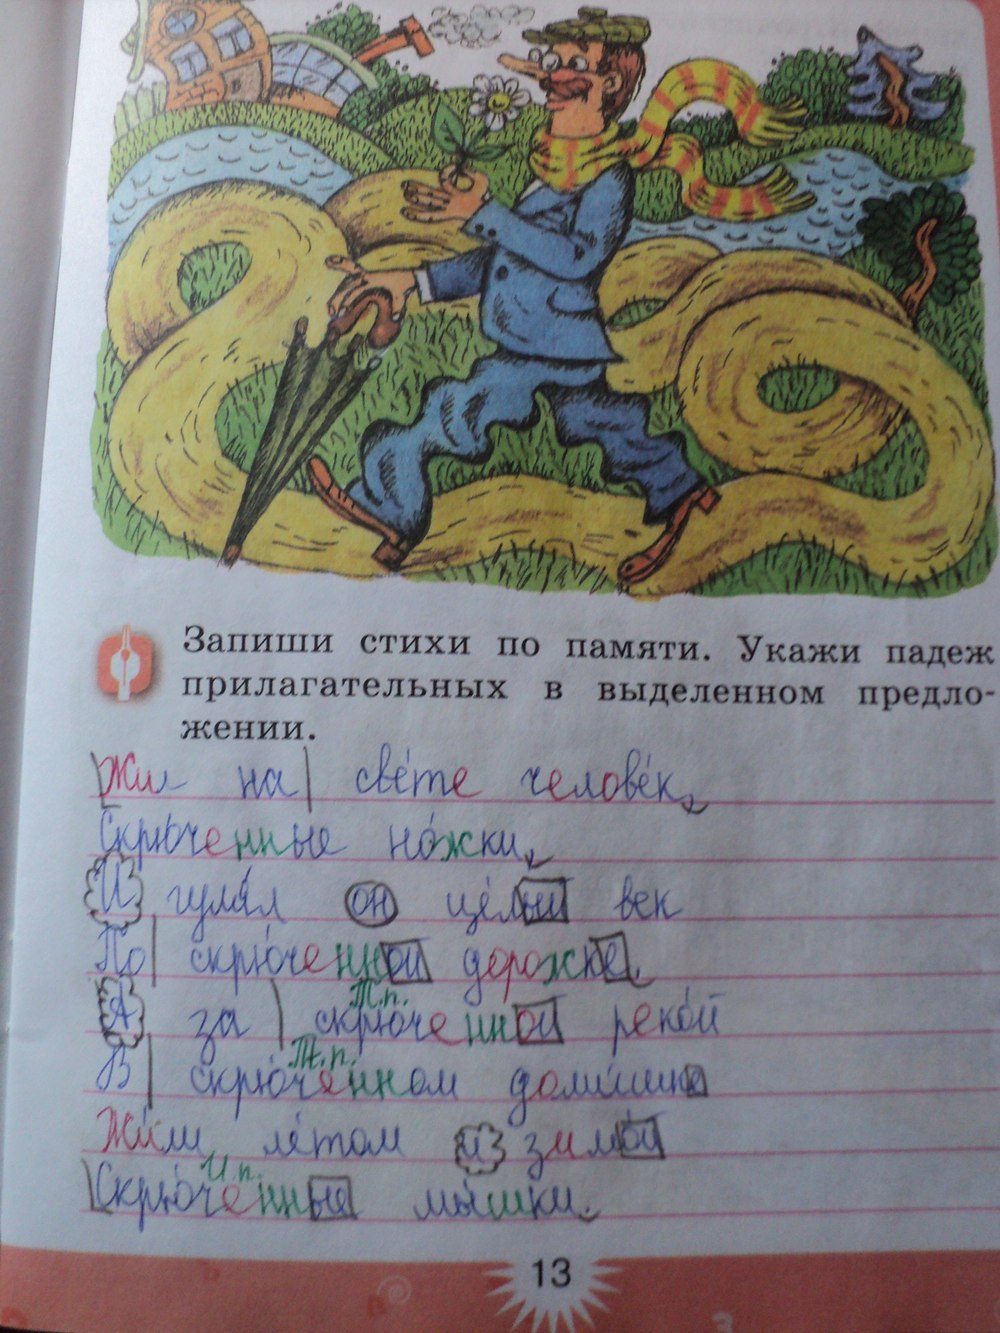 Запиши стихи по памяти. Укажи падеж
прилагательных в выделенном предло-
жении.
Жил на свете человек,
Скрюченные ножки,
И гулял он целый век
По скрюченной дорожке.
Т.п.
А за скрюченной рекой
Т.п.
В скрюченном домишке
Жили летом и зимой
И.п.
Скрюченные мышки.
13